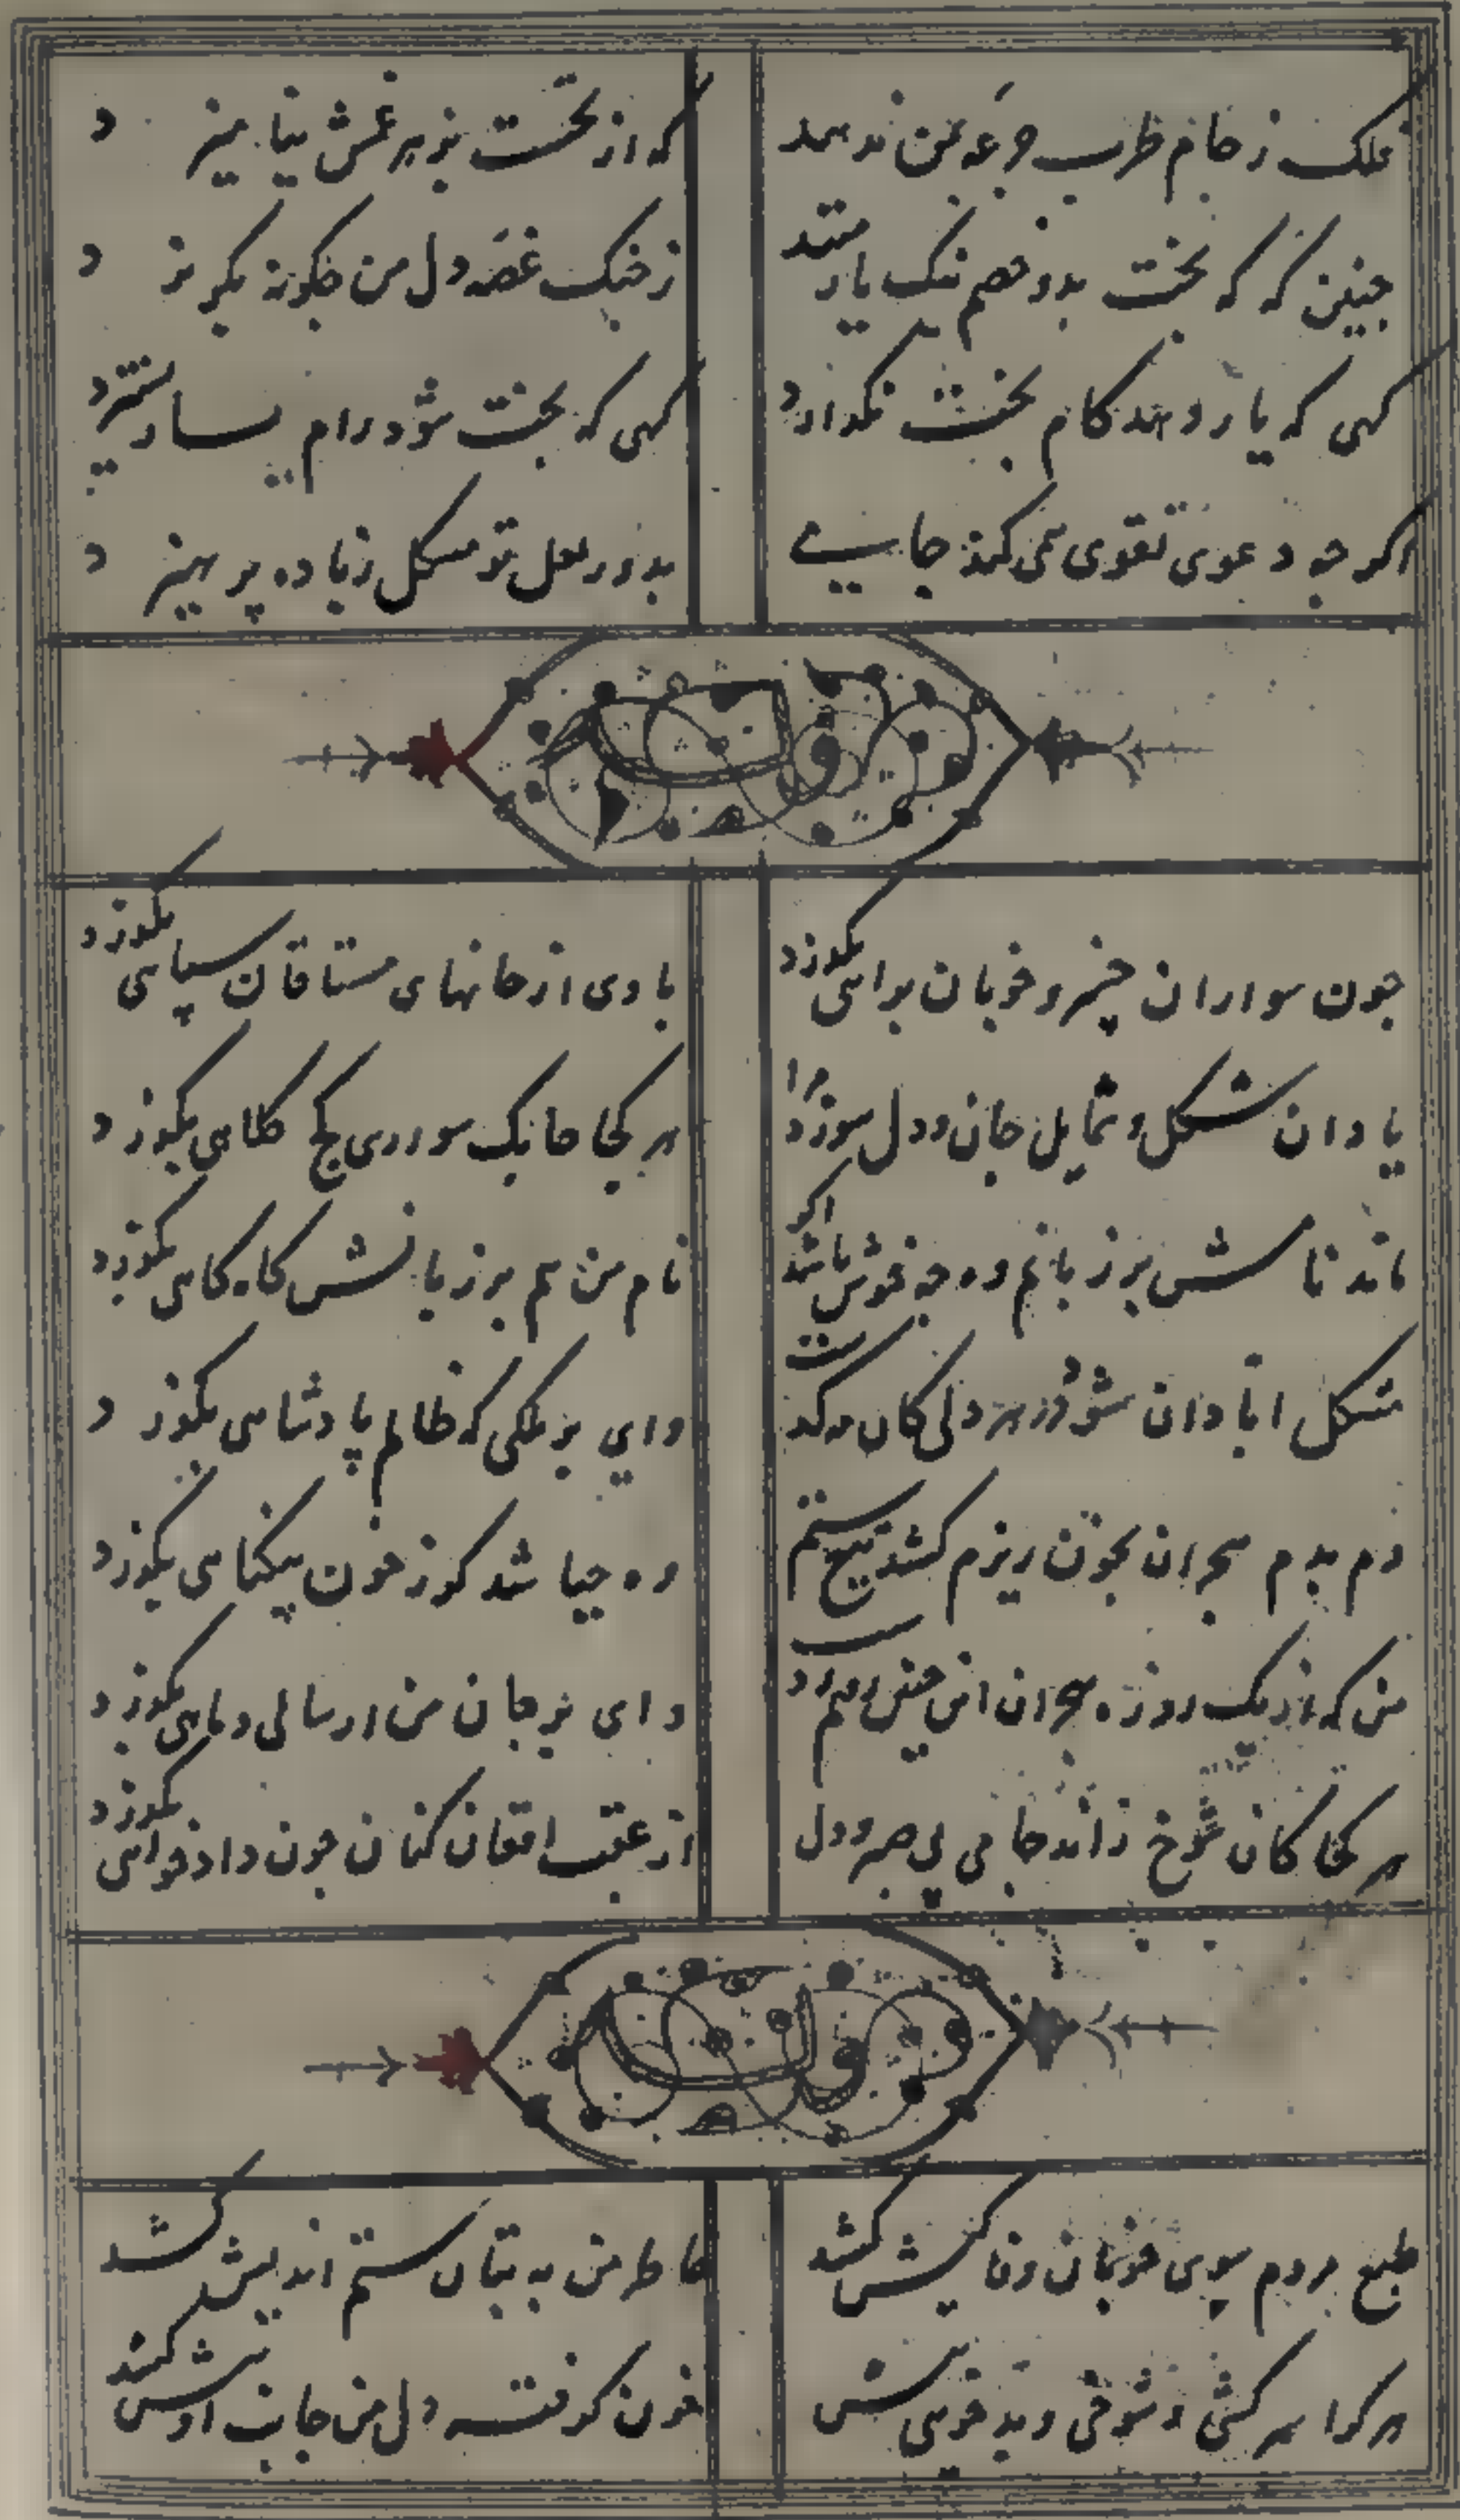 فلک ز جام طرب جرعه بمن ندهد
که از نخست بزهر غمش نیامیزد
چنین که که بخت بد و خصم نیک یار منند
ز خنک غصه دل من چکونه بکریزد
کهی که یار دهد کام بخت نکذارد
کهی که بخت شود رام یار بستیزد
اکر چو دعوی تقوی نمی کند جامی
بدور لعل تو مشکل ز باده پرهیزد
چون سواران خسرو خوبان براهی بکذرد
بادی از جانهای مشتاقان سپاهی بکذرد
یاد ان شکل و شمایل جان و دل سوزد مرا
هر کجا چابک سواری کج کلاهی بکذرد
ماند نامش بر زبانم وه چه خوش باشد اکر
نام من هم بر زبانش کاه کاهی بکذرد
مشکل ابادان شود هر دلی کان مه کذشت
وای بر ملکی که ظالم پادشاهی بکذرد
دم بدم هجران بخون ریزم کشد تیغ ستم
وه چه باشد کو ز خون بیکناهی بکذرد
من که از یک روزه هجران این چنین رفتم ز دست
وای بر جان من ار سالی و ماهی بکذرد
هر کجا کان شوخ راند جامی بی صبر و دل
از عقب افغان کنان چون دادخواهی بکذرد
طبع مردم سوی خوبان وفا کیش کشد
خاطر من به بتان ستم اندیش کشد
هر کرا سرکشی و شوخی و بدخویی بیش
خون کرفته دل من جانب او بیش کشد